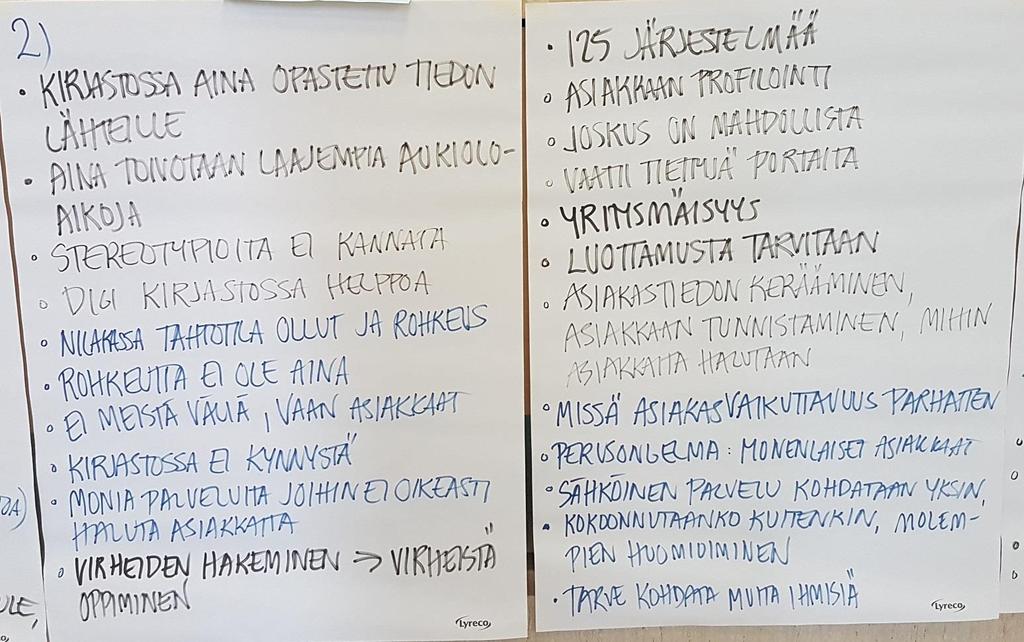 2)
• KIRJASTOSSA AINA OPASTETTU TIEDON
LÄHTEILLE
• AINA TOIVOTAAN LAAJEMPIA AUKIOLO-
AIKOJA
• STEREOTYPIOITA EI KANNATA
• DIGI KIRJASTOSSA HELPPOA
• NILAKASSA TAHTOTILA OLLUT JA ROHKEUS
• ROHKEUTTA EI OLE AINA
• EI MEISTÄ VÄLIÄ, VAAN ASIAKKAAT
• KIRJASTOSSA EI KYNNYSTÄ
• MONIA PALVELUITA JOIHIN EI OIKEASTI
HALUTA ASIAKKAITA
• VIRHEIDEN HAKEMINEN → VIRHEISTÄ
OPPIMINEN
Lyreco
• 125 JÄRJESTELMÄÄ
• ASIAKKAAN PROFILOINTI
• JOSKUS ON MAHDOLLISTA
• VAATII TIETTYJÄ PORTAITA
• YRITYSMÄISYYS
• LUOTTAMUSTA TARVITAAN
• ASIAKASTIEDON KERÄÄMINEN,
ASIAKKAAN TUNNISTAMINEN, MIHIN
ASIAKKAITA HALUTAAN
• MISSÄ ASIAKASVAIKUTTAVUUS PARHAITEN
• PERUSONGELMA: MONENLAISET ASIAKKAAT
• SÄHKÖINEN PALVELU KOHDATAAN YKSIN,
• KOKOONNUTAANKO KUITENKIN, MOLEM-
PIEN HUOMIOIMINEN
• TARVE KOHDATA MUITA IHMISIÄ
Lyreco